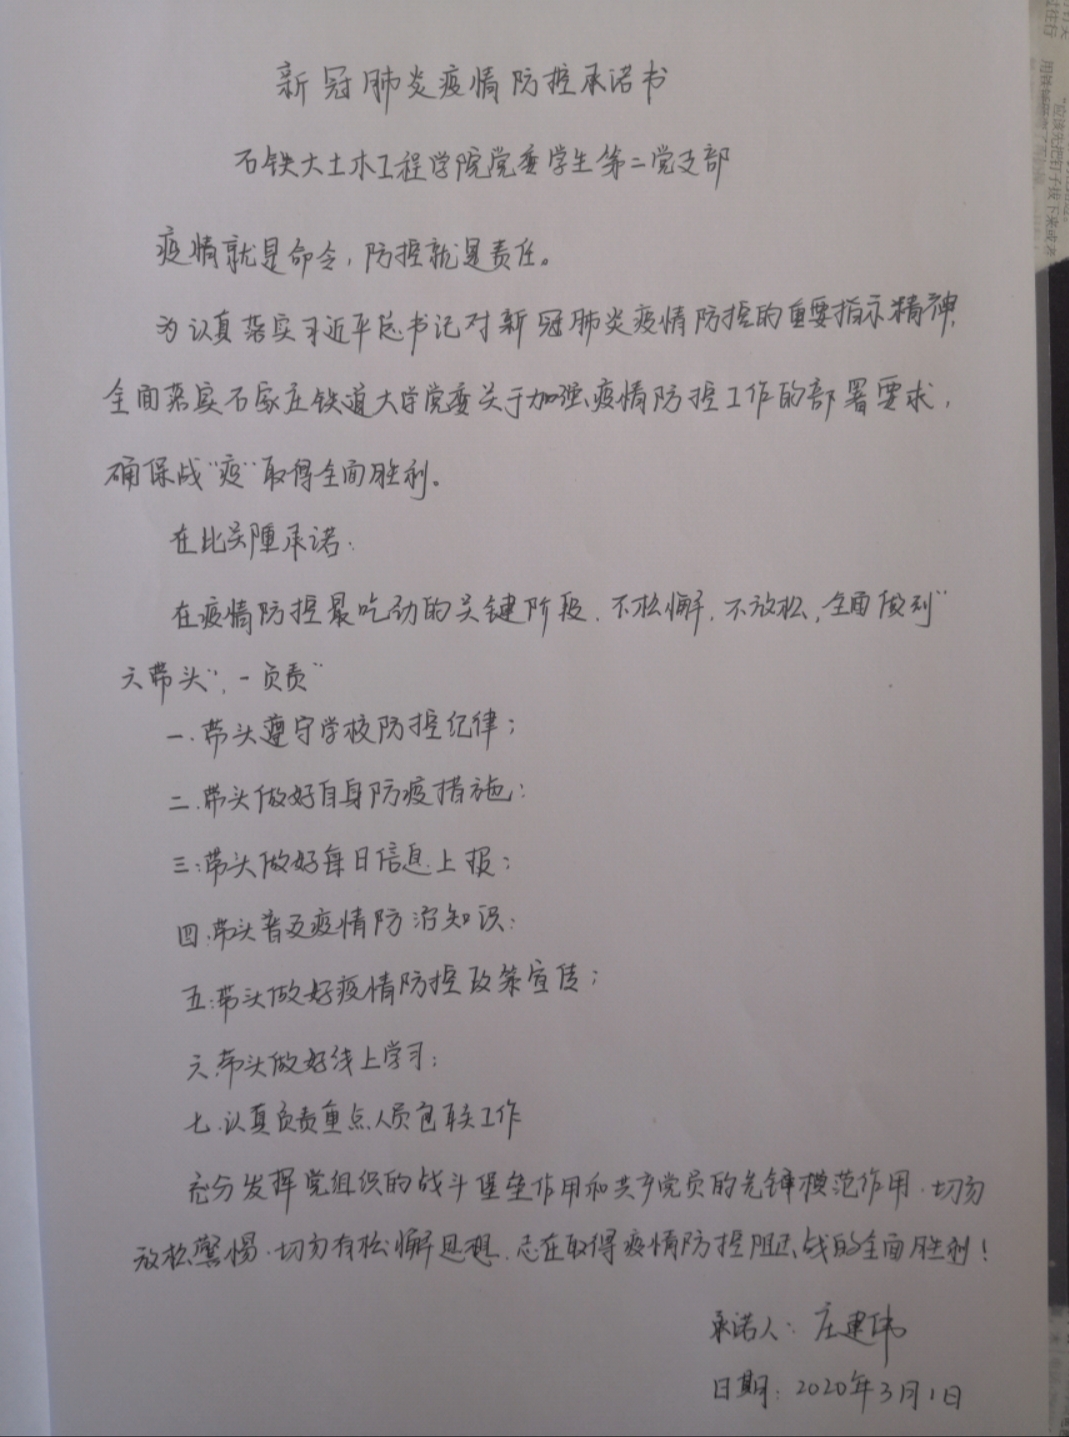 新冠肺炎疫情防控承诺书
石铁大土木工程学院党委学生第二党支部
疫情就是命令,防控就是责任。
为认真落实习近平总书记对新冠肺炎疫情防控的重要指示精神,
全面落实石家庄铁道大学党委关于加强疫情防控工作的部署要求,
确保战"疫"取得全面胜利。
在比郑重承诺:
在疫情防控最吃劲的关键阶段.不松懈.不放松,全面做到"
六带头",一负责"
一.带头遵守学校防控纪律;
二.带头做好自身防疫措施:
三:带头做好每日信息上报;
四.带头普及疫情防治知识:
五:带头做好疫情防控政策宣传;
六.带头做好线上学习;
七.认真负责重点人员包联工作
充分发挥党组织的战斗堡垒作用和共产党员的先锋模范作用.切勿
放松警惕.切勿有松懈思想.志在取得疫情防控阻击战的全面胜利!
承诺人:庄建伟
日期:2020年3月1日
过住行
"应该先把钉子拔下来或者